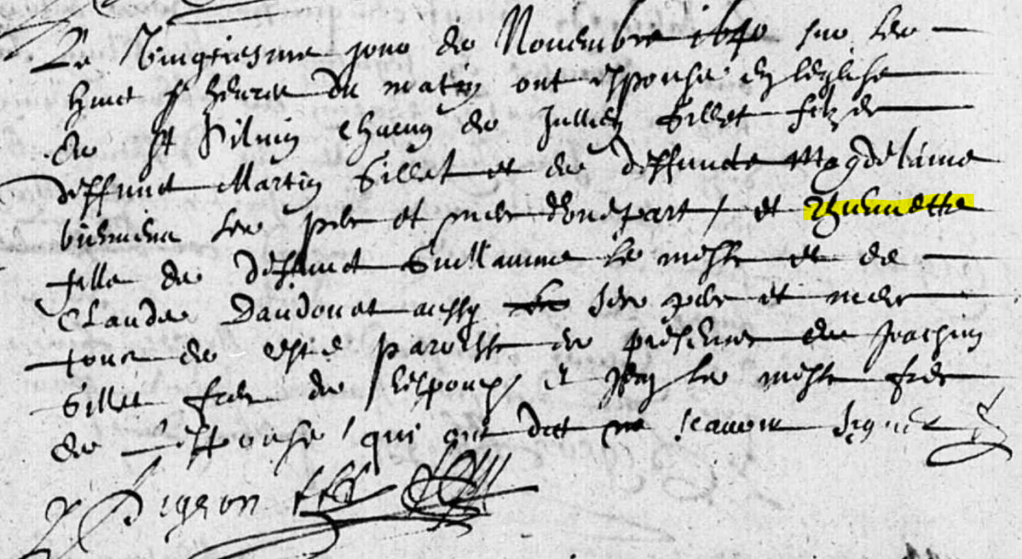 Le Vingtiesme jour de Novembre 1640 sur les
huict heures du matin ont espousé en leglise
de St Silvin Jullien Gillet filz de
deffunct Martin Gillet et de deffuncte Magdelaine
ses pere et mere dunepart / et
fille de deffunct Guillaume le et de
Claude Daudouet aussy ses pere et mere
tous de ceste paroisse en presence de Joachin
Gillet frere de lespoux et Jean le frere
de Lespouse / qui ont dit ne scavoir signer
Pigeon